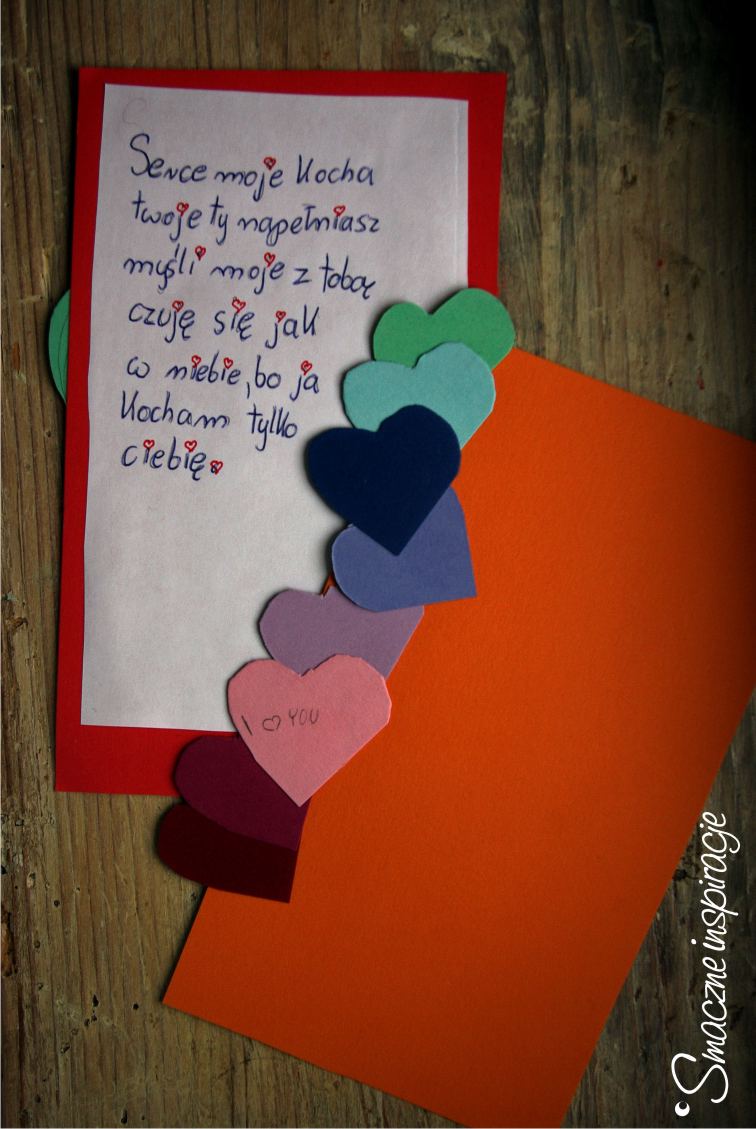 Serce moje kocha
twoje ty napełniasz
myśli moje z tobą
czuję się jak
w niebie, bo ja
kocham tylko
ciebię.
I ♡ YOU
Smaczne inspiracje